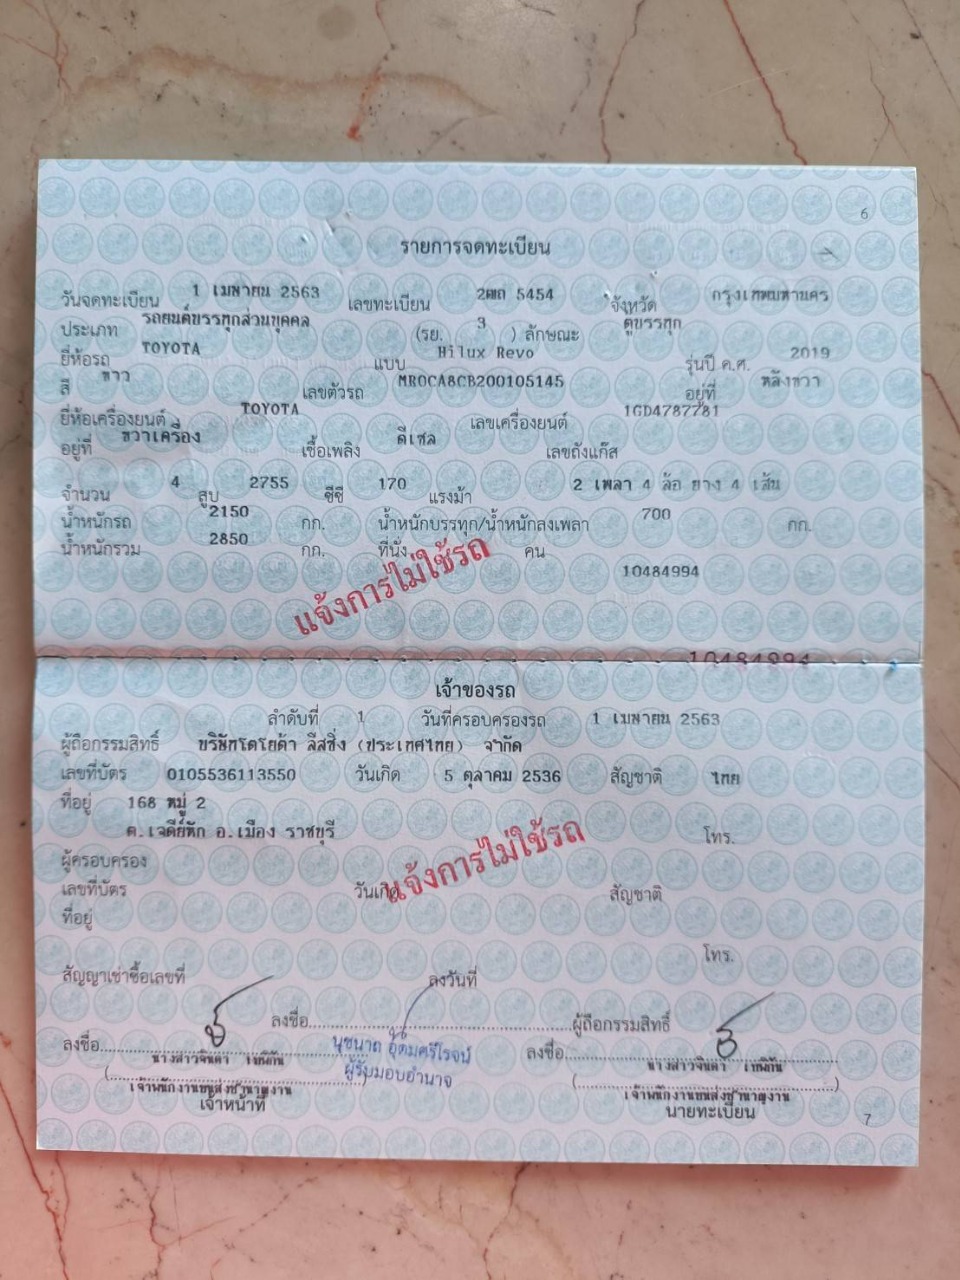 6
รายการจดทะเบียน
วันจดทะเบียน 1 เมษายน 2563 เลขทะเบียน 2ฒถ 5454 จังหวัด กรุงเทพมหานคร
ประเภท รถยนต์บรรทุกส่วนบุคคล (รย. 3 ) ลักษณะ ตู้บรรทุก
ยี่ห้อรถ TOYOTA แบบ Hilux Revo รุ่นปี ค.ศ. 2019
สี ขาว เลขตัวรถ MR0CA8CB200105145 อยู่ที่ หลังขวา
ยี่ห้อเครื่องยนต์ TOYOTA เลขเครื่องยนต์ 1GD4787781
อยู่ที่ ขวาเครื่อง เชื้อเพลิง ดีเซล เลขถังแก๊ส
จำนวน 4 สูบ 2755 ซีซี 170 แรงม้า 2 เพลา 4 ล้อ ยาง 4 เส้น
น้ำหนักรถ 2150 กก. น้ำหนักบรรทุก/น้ำหนักลงเพลา 700 กก.
น้ำหนักรวม 2850 กก. ที่นั่ง คน
แจ้งการไม่ใช้รถ
10484994
10484994
เจ้าของรถ
ลำดับที่ 1 วันที่ครอบครองรถ 1 เมษายน 2563
ผู้ถือกรรมสิทธิ์ บริษัทโตโยต้า ลีสซิ่ง (ประเทศไทย) จำกัด
เลขที่บัตร 0105536113550 วันเกิด 5 ตุลาคม 2536 สัญชาติ ไทย
ที่อยู่ 168 หมู่ 2
ต.เจดีย์หัก อ.เมือง ราชบุรี โทร.
ผู้ครอบครอง
แจ้งการไม่ใช้รถ
เลขที่บัตร วันเกิด สัญชาติ
ที่อยู่
โทร.
สัญญาเช่าซื้อเลขที่ ลงวันที่
ลงชื่อ ผู้ถือกรรมสิทธิ์
นุชนาถ อุดมศรีโรจน์
ผู้รับมอบอำนาจ
ลงชื่อ ลงชื่อ
นางสาวจินดา เทพิกัน นางสาวจินดา เทพิกัน
เจ้าพนักงานขนส่งชำนาญงาน เจ้าพนักงานขนส่งชำนาญงาน
เจ้าหน้าที่ นายทะเบียน
7